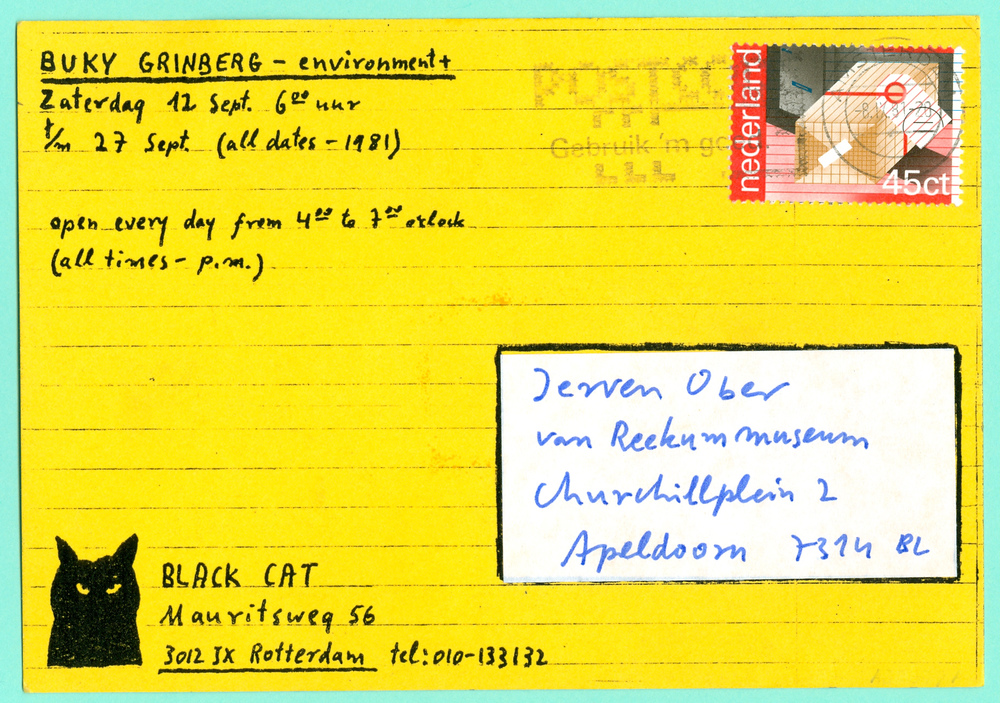 BUKY GRINBERG - environment+
Zaterdag 12 Sept. 6⁰⁰ uur
t/m 27 Sept. (all dates - 1981)
open every day from 4⁰⁰ to 7⁰⁰ oclock
(all times - p.m.)
nederland
45ct
Gebruik 'm
Jerven Ober
van Reekummuseum
Churchillplein 2
Apeldoorn 7314 BL
BLACK CAT
Mauritsweg 56
3012 JX Rotterdam tel: 010-133132